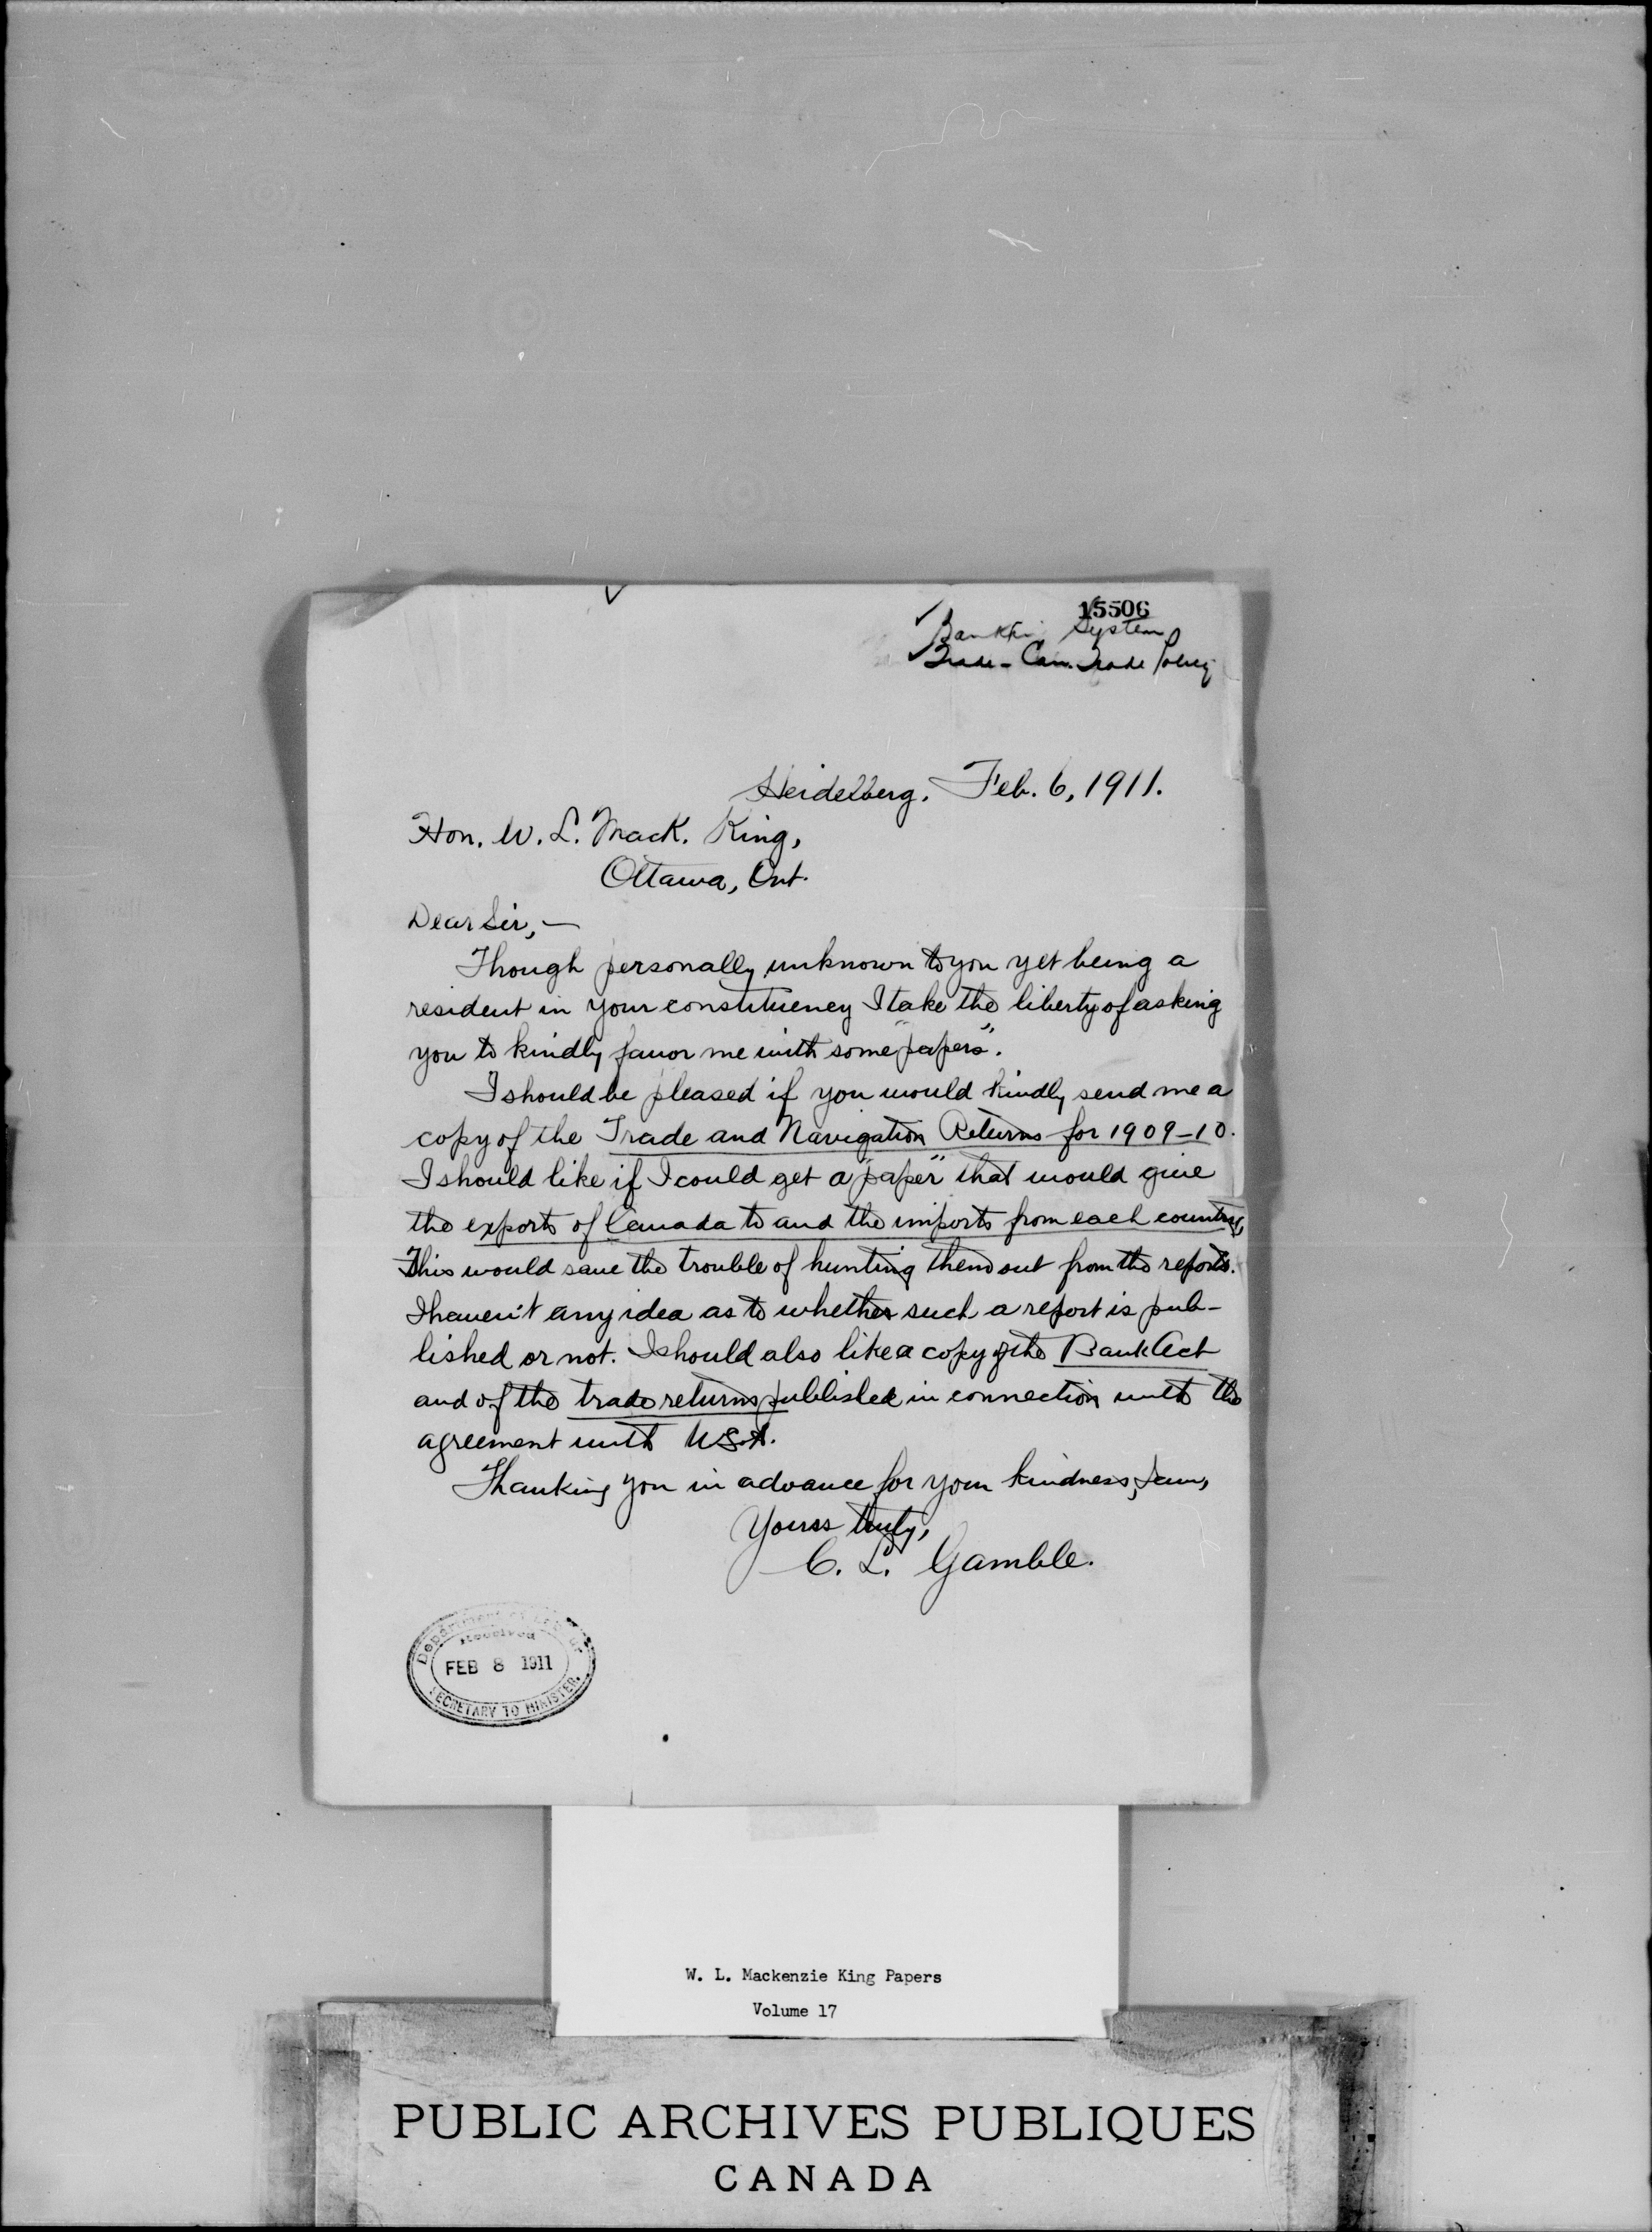 15506
System
Trade - Can. Trade Policy
Heidelberg. Feb. 6, 1911.
Hon. W. L. Mack. King,
Ottawa, Ont.
Dear Sir,—
Though personally unknown to you yet being a
resident in your constituency I take the liberty of asking
you to kindly favor me with some "papers".
I should be pleased if you would kindly send me a
copy of the Trade and Navigation Returns for 1909-10.
I should like if I could get a "paper" that would give
the exports of Canada to and the imports from each country,
This would save the trouble of hunting them out from the reports.
I haven't any idea as to whether such a report is pub-
lished or not. I should also like a copy of the Bank Act
and of the trade returns published in connection with the
agreement with U.S.A.
Thanking you in advance for your kindness, I am,
Yours truly,
C. L. Gamble.
Department of Labour
Received
FEB 8 1911
SECRETARY TO MINISTER.
W. L. Mackenzie King Papers
Volume 17
PUBLIC ARCHIVES PUBLIQUES
CANADA